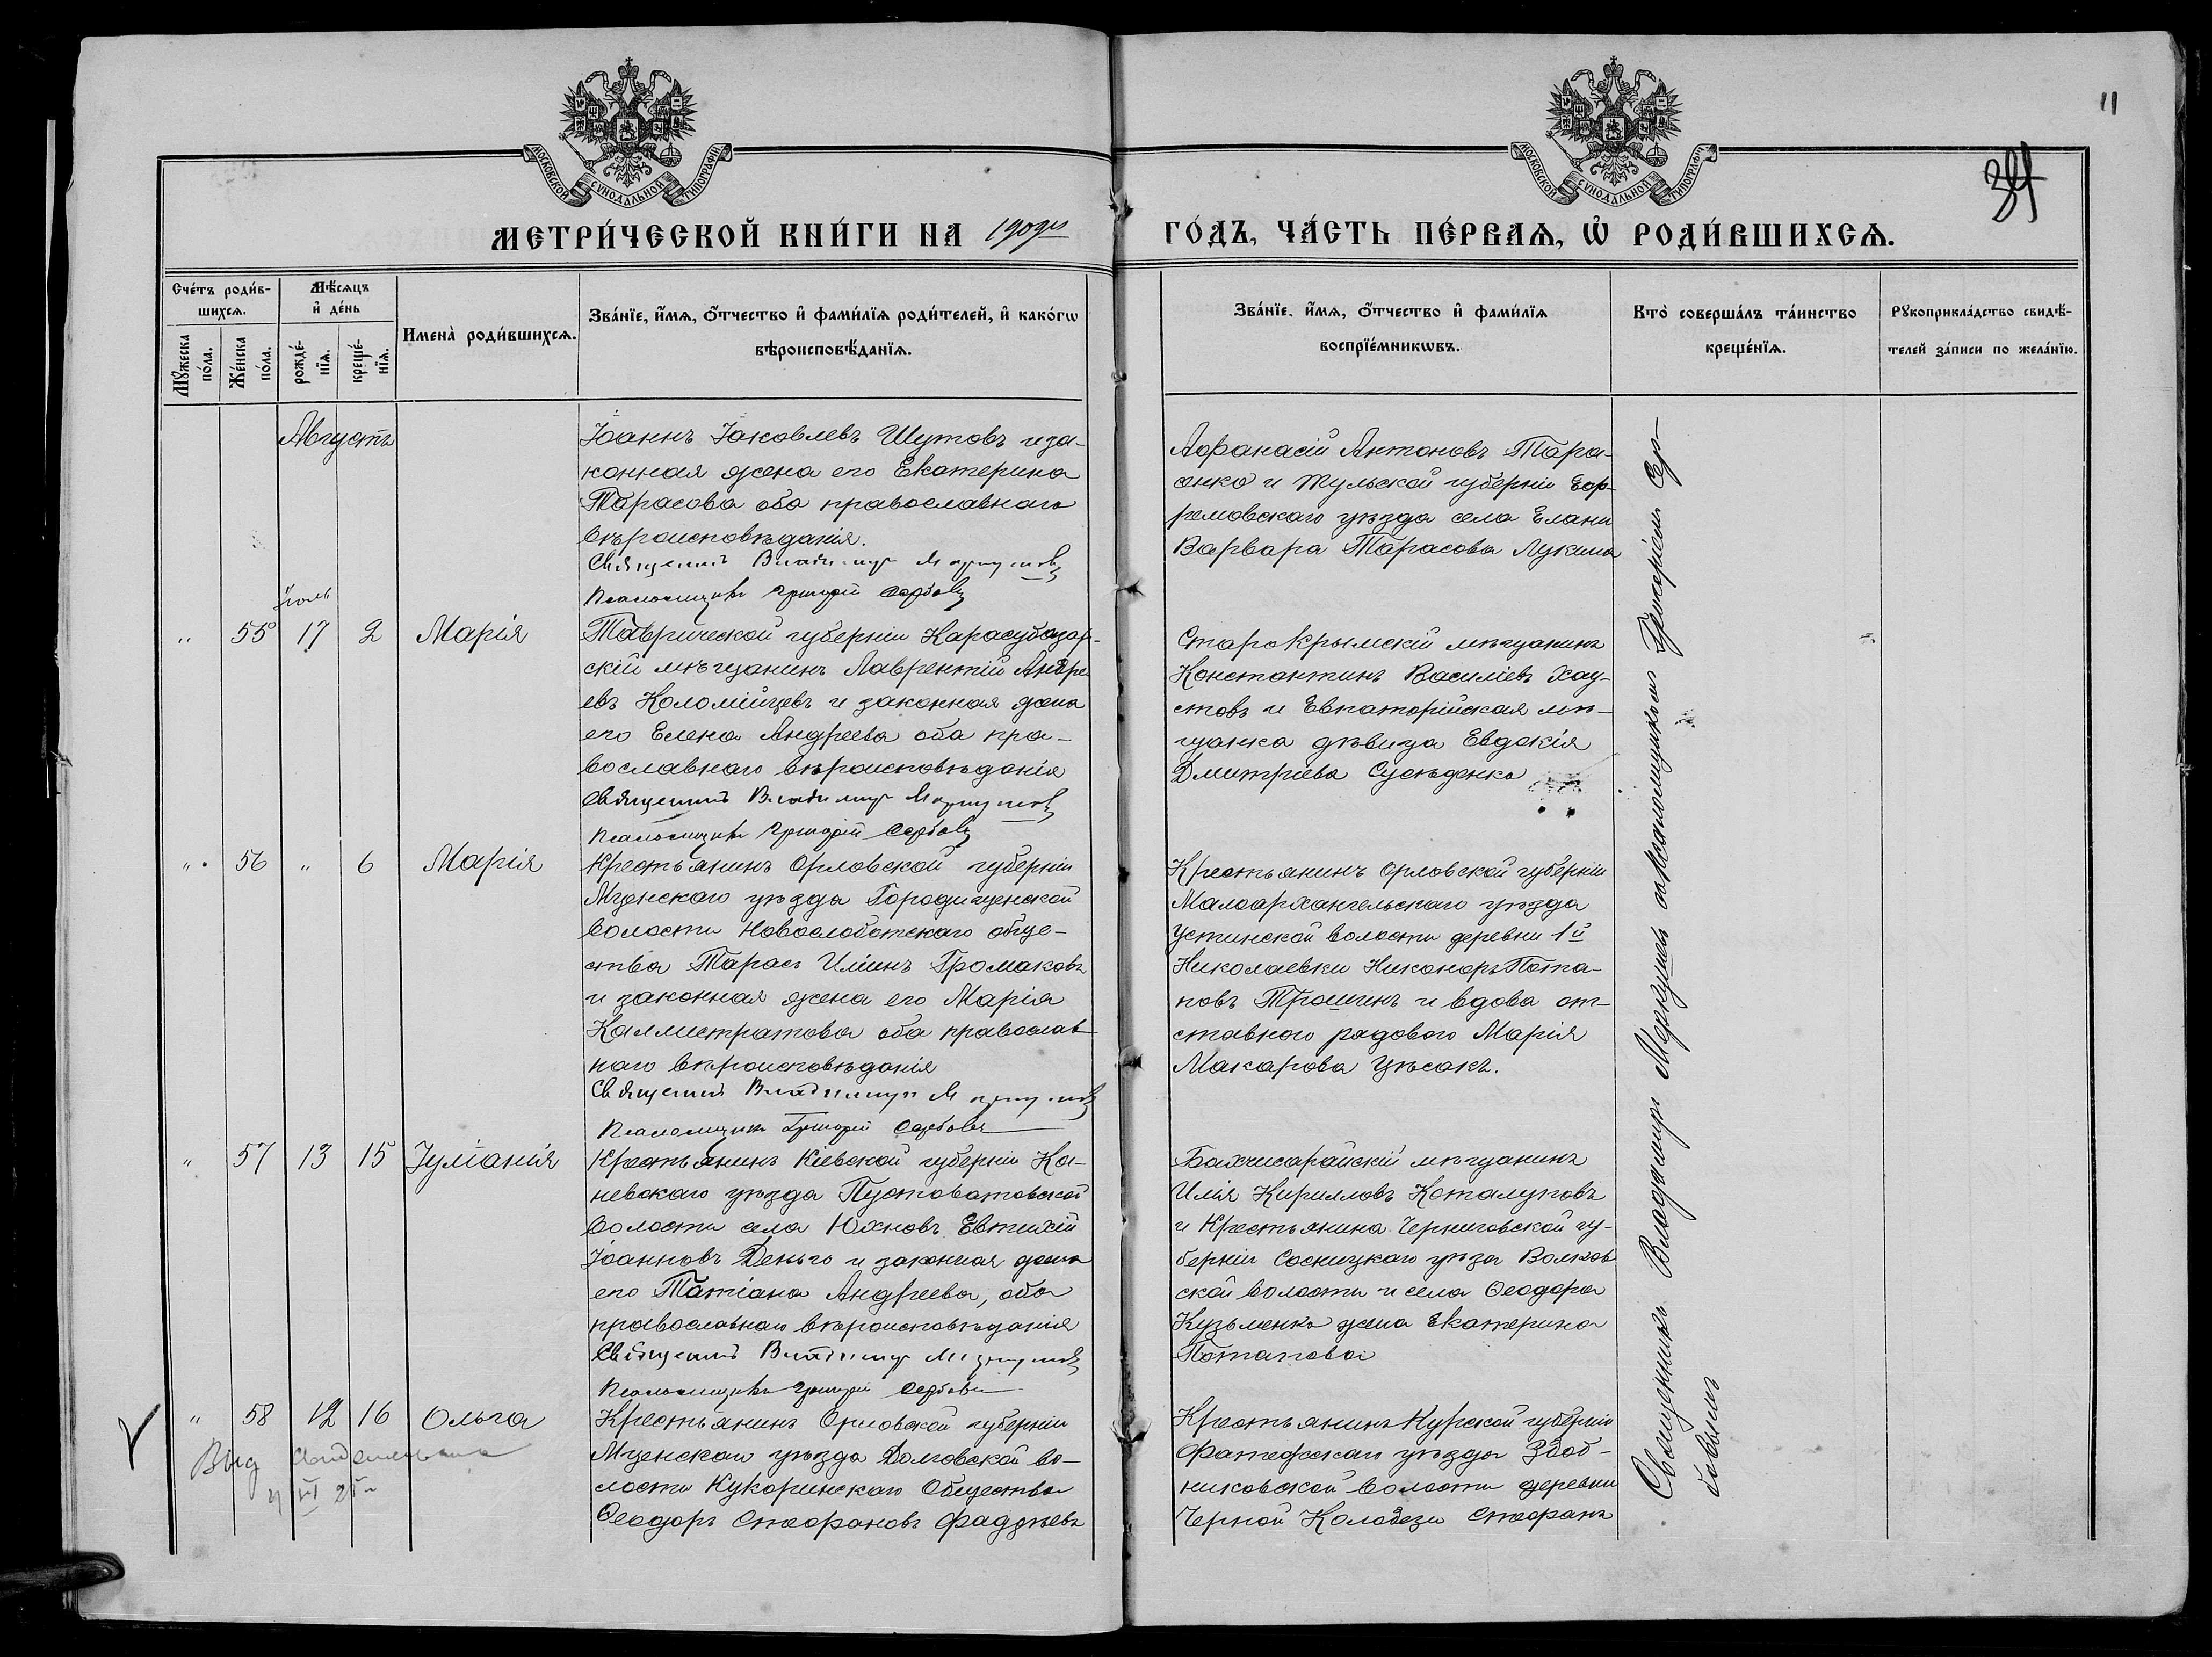 11
МОСКОВСКОЙ СУНОДАЛЬНОЙ ТИПОГРАФІИ
МОСКОВСКОЙ СУНОДАЛЬНОЙ ТИПОГРАФІИ
МЕТРИ́ЧЕСКОЙ КНИ́ГИ НА
ГО́ДЪ, ЧА́СТЬ ПЕ́РВАѦ, Ѡ҆ РОДИ́ВШИХСѦ.
Сче́тъ роди́в-
шихсѧ.
Мѣ́сѧцъ
и҆ де́нь
Мꙋ́жеска по́ла.
Же́нска по́ла.
рожде́-
нїѧ.
креще́-
нїѧ.
Имена̀ роди́вшихсѧ.
Зва́нїе, и҆́мѧ, ѻ҆́тчество и҆ фами́лїѧ роди́телей, и҆ како́гѡ
вѣроисповѣ́данїѧ.
Зва́нїе, и҆́мѧ, ѻ҆́тчество и҆ фами́лїѧ
воспрїе́мникѡвъ.
Кто̀ соверша́лъ та́инство
креще́нїѧ.
Рꙋкоприкла́дство свидѣ́-
телей за́писи по жела́нїю.
Августъ
Іоаннъ Іаковлевъ Шутовъ и за-
конная жена его Екатерина
Тарасова оба православнаго
вѣроисповѣданія.
Священникъ Владимир Меркушев
Псаломщикъ Григорій Сербовъ
Афанасій Антоновъ Тара-
сенко и Тульской губерніи Еф-
ремовскаго уѣзда села Елани
Варвара Тарасова Лукина
Іюль
" 55 17 2 Марія
Таврической губерніи Карасубазар-
скій мѣщанинъ Лаврентій Андре-
евъ Коломійцевъ и законная жена
его Елена Андреева оба пра-
вославнаго вѣроисповѣданія
Священникъ Владимир Меркушев
Псаломщикъ Григорій Сербовъ
СтароКрымскій мѣщанинъ
Константинъ Василіевъ Хау-
стовъ и Евпаторійская мѣ-
щанка дѣвица Евдокія
Дмитріева
" 56 " 6 Марія
Крестьянинъ Орловской губерніи
Мценскаго уѣзда Городищенской
волости Новослободскаго обще-
ства Тарасъ Иліинъ Громаковъ
и законная жена его Марія
Каллистратова оба православ-
наго вѣроисповѣданія
Священникъ Владимир Меркушев
Псаломщикъ Григорій Сербовъ
Крестьянинъ Орловской губерніи
Малоархангельскаго уѣзда
Устинской волости деревни 1й
Николаевки Никаноръ Пота-
повъ Трошинъ и вдова от-
ставного рядового Марія
Макарова
" 57 13 15 Іуліанія
Крестьянинъ Кіевской губерніи Ка-
невскаго уѣзда Пустоватовской
волости села Юхновъ Евтихій
Іоанновъ Деньго и законная жена
его Татіана Андреева, оба
православнаго вѣроисповѣданія
Священникъ Владимир Меркушев
Псаломщикъ Григорій Сербовъ
Бахчисарайскій мѣщанинъ
Илія Кирилловъ Каталуповъ
и Крестьянина Черниговской гу-
берніи Сосницкаго уѣзда Волков
ской волости и села Ѳеодора
Кузьменко жена Екатерина
Потапова
" 58 12 16 Ольга
Крестьянинъ Орловской губерніи
Мценскаго уѣзда Долговской во-
лости Кукоринскаго Общества
Ѳеодоръ Стефановъ Фаддѣевъ
Крестьянинъ Курской губерніи
Фатежскаго уѣзда
никовской волости деревни
Черной Колодезь Стефанъ
Священникъ Владимиръ Меркушев съ Псаломщикомъ Григоріемъ Сер-
бовымъ